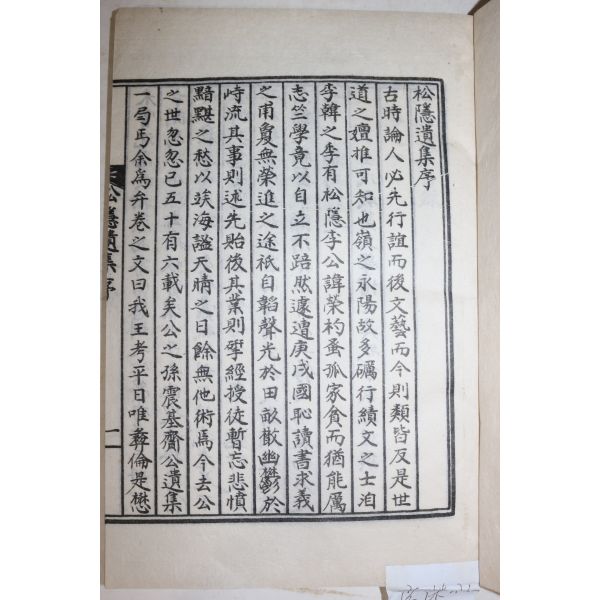 松隱遺集序
古時論人必先行誼而後文藝而今則類皆反是世
道之嬗推可知也嶺之永陽故多礪行績文之士洎
李韓之季有松隱李公諱榮杓蚤孤家貧而猶能厲
志竺學竟以自立不踣然遽遭庚戌國恥讀書求義
之甫敻無榮進之途祇自韜聲光於田畝散幽鬱於
峙流其事則述先貽後其業則孿經授徒暫忘悲憤
黯黮之愁以竢海謐天晴之日餘無他術焉今去公
之世忽忽已五十有六載矣公之孫震基齎公遺集
一局丐余爲弁卷之文曰我王考平日唯彝倫是懋
松隱遺集序
一